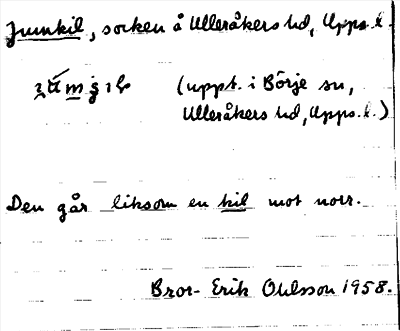 Jumkil, socken å Ulleråkers hd, Upps. l.
(uppt. i Börje sn,
Ulleråkers hd, Upps. l.)
Den går liksom en kil mot norr.
Bror-Erik Ohlsson 1958.